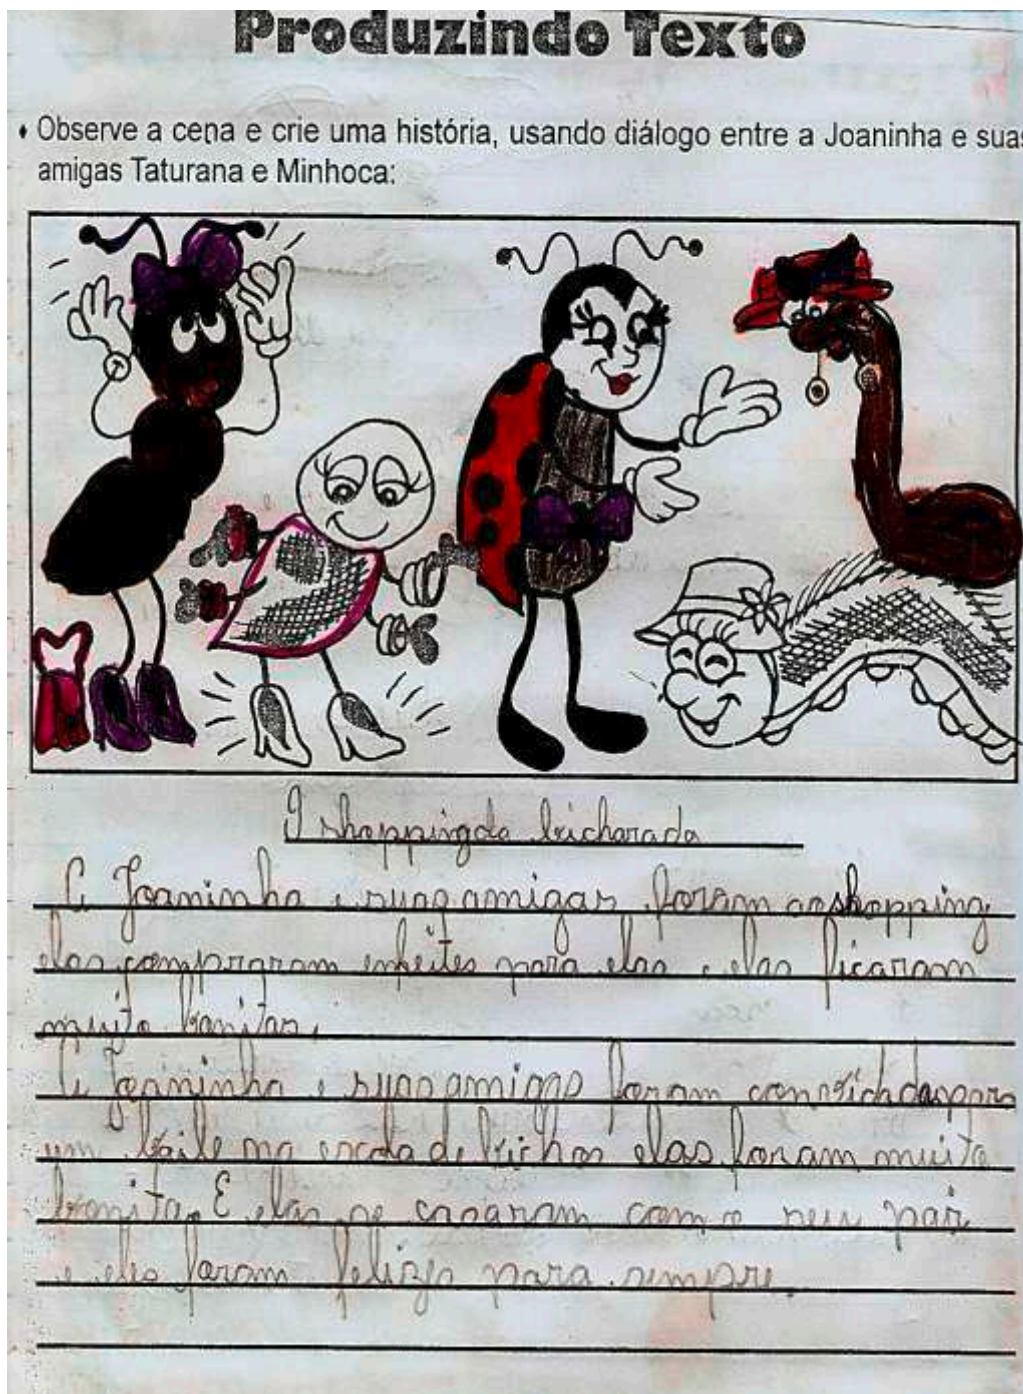 Produzindo Texto
• Observe a cena e crie uma história, usando diálogo entre a Joaninha e suas
amigas Taturana e Minhoca:
O shopping da bicharada
A Joaninha e suas amigas foram ao shopping
elas compraram enfeites para elas e elas ficaram
muito bonitas.
A Joaninha e suas amigas foram convidadas para
um baile na escola de bichos elas foram muito
bonita. E elas se casaram com o seu par
e eles foram felizes para sempre.